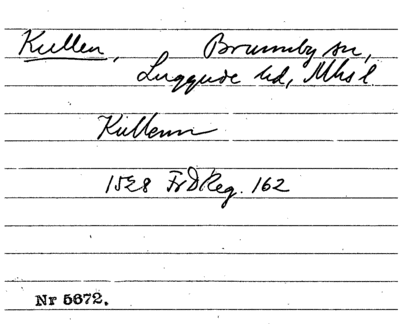 Kullen, Brunnby sn,
Luggude hd, Mhs l.
Kullenn
1528 FrdReg. 162
Nr 5672.